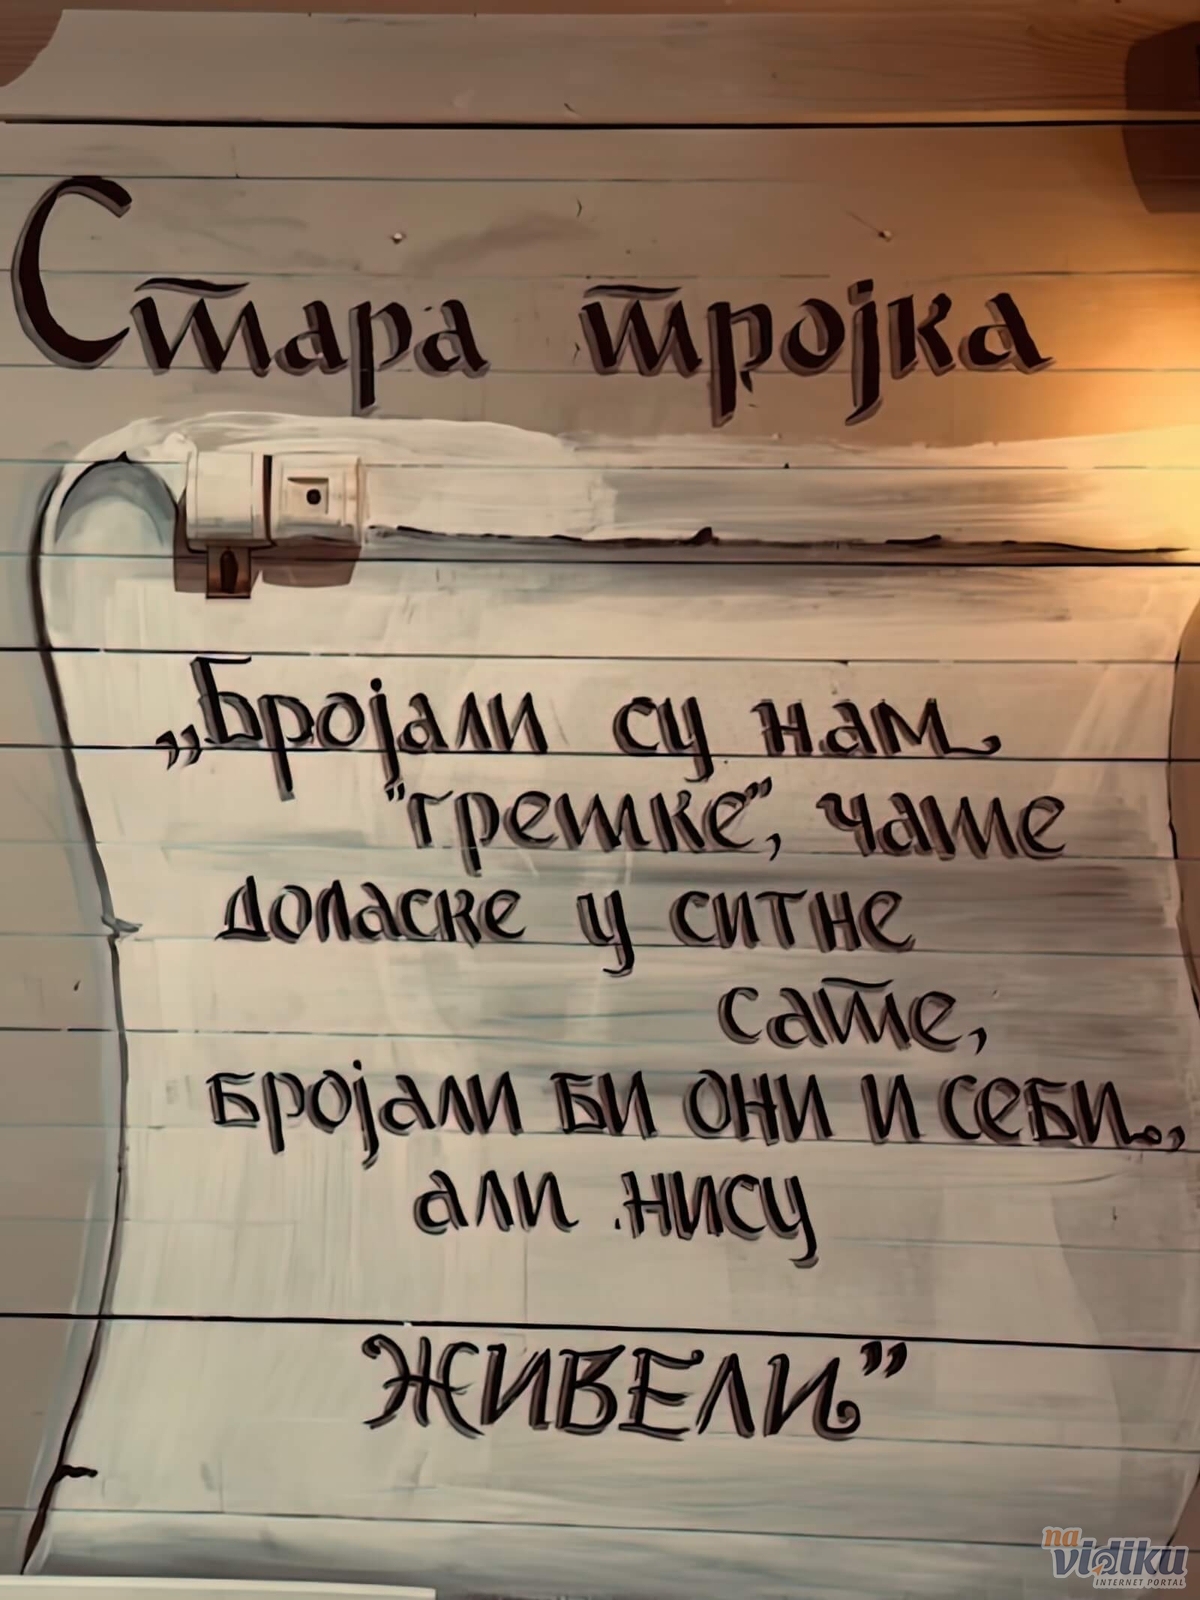 Стара тројка
„Бројали су нам
"грешке", чаше
доласке у ситне
сате,
бројали би они и себи..,
али нису
ЖИВЕЛИ”
na
vidiku
INTERNET PORTAL